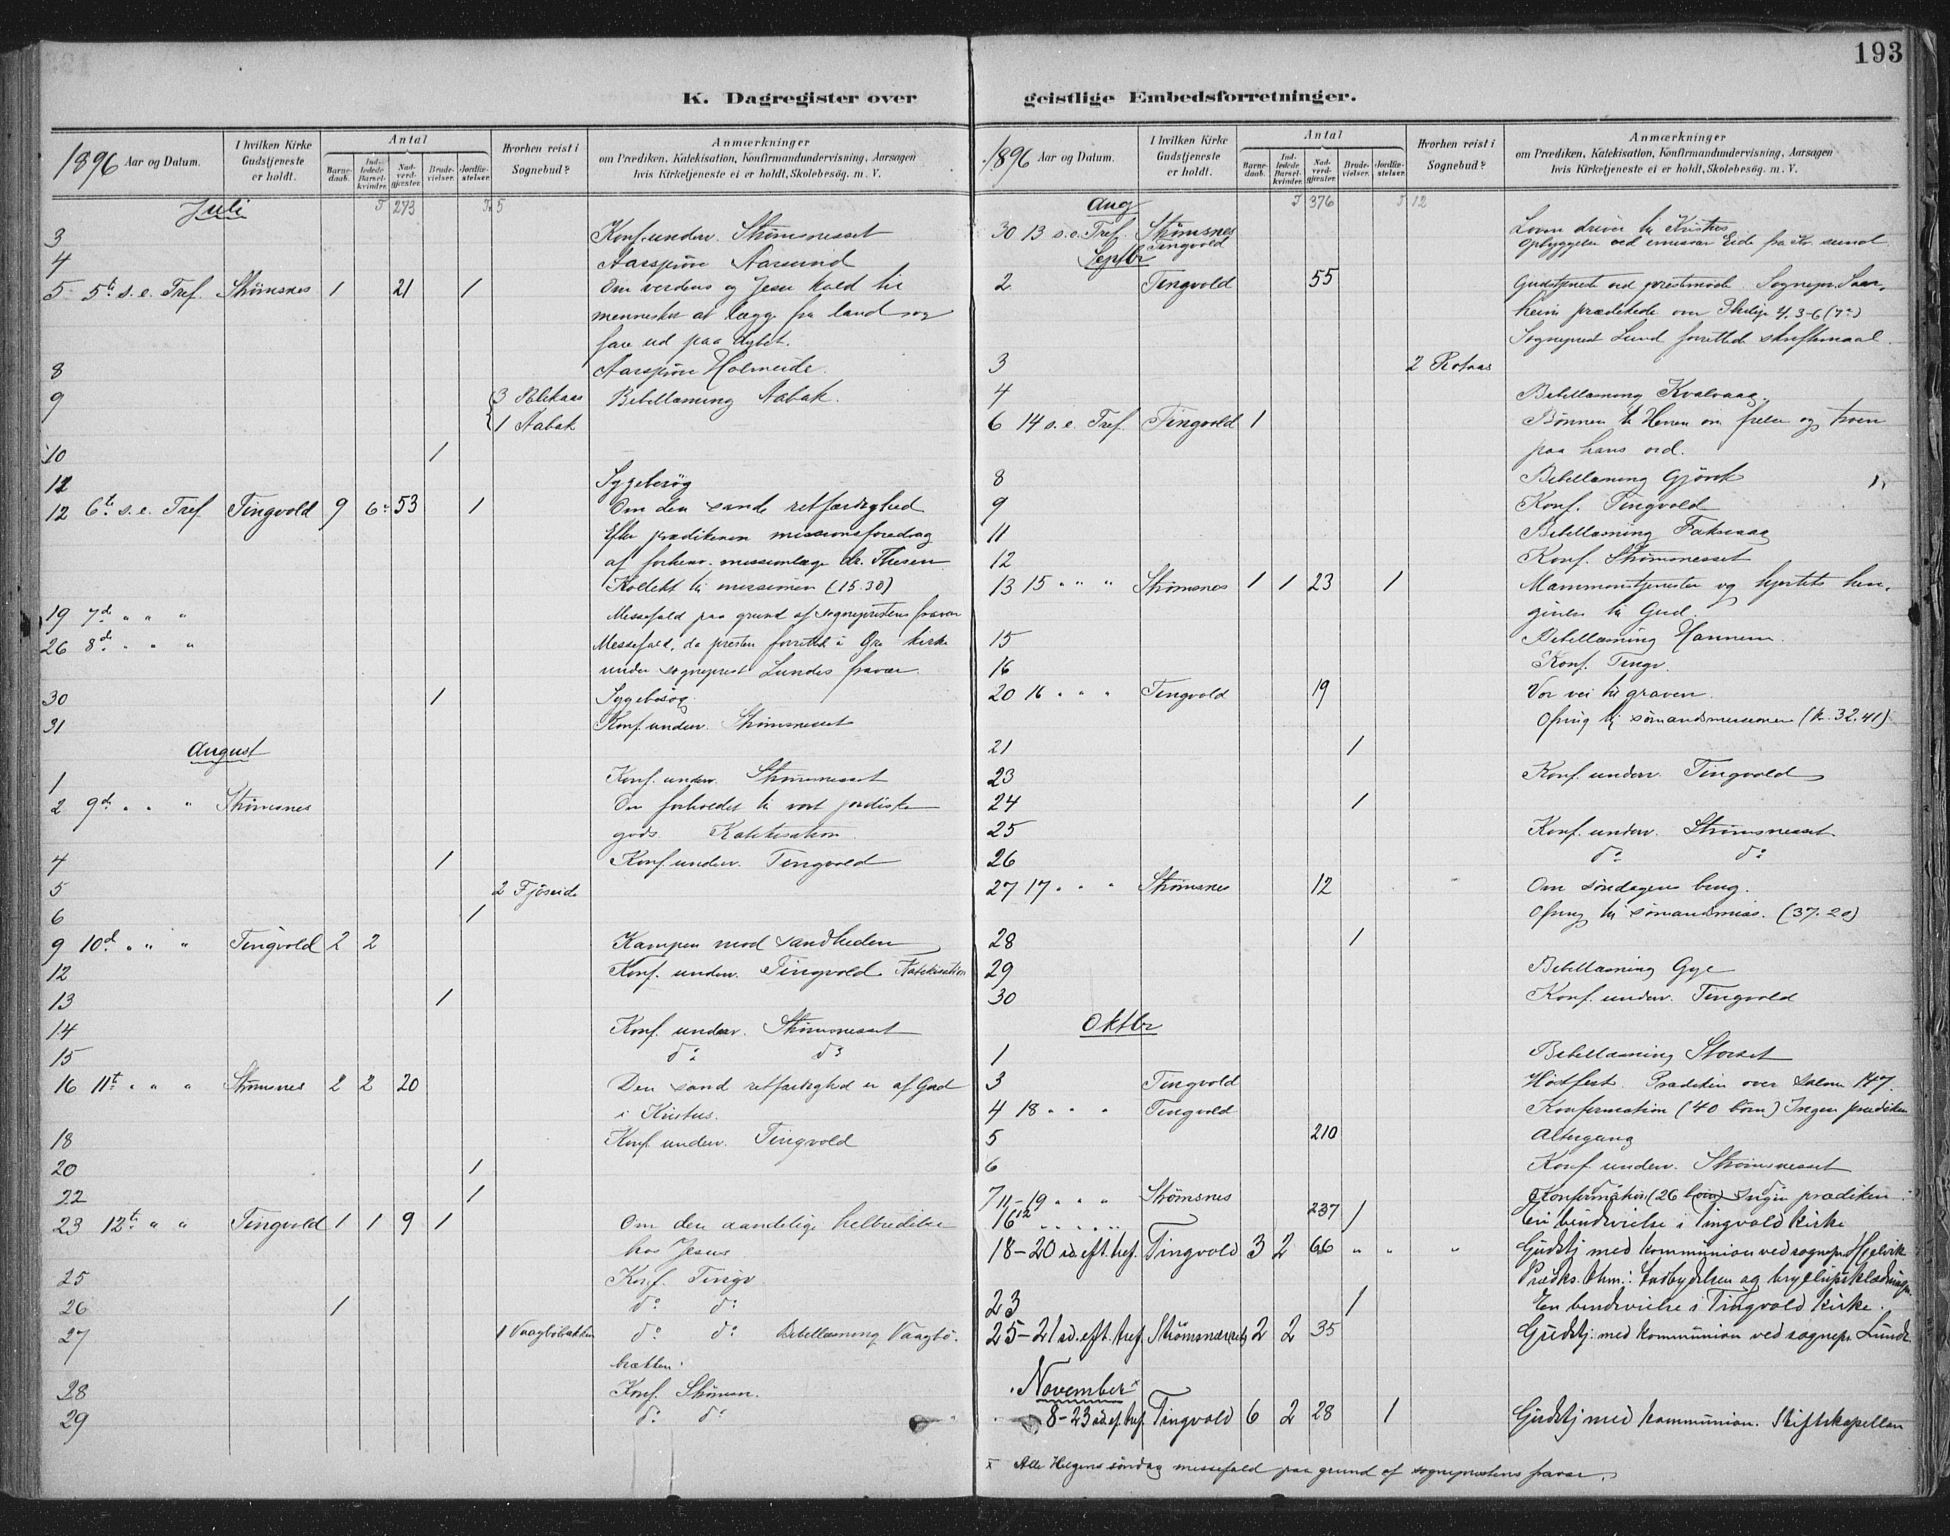 193
K. Dagregister over geistlige Embedsforretninger.
1896 Aar og Datum. I hvilken Kirke Gudstjeneste er holdt. Antal Barnedaab. Indledede Barselkvinder. Nadverdgjæster. Brudevielser. Jordfæstelser. Hvorhen reist i Sognebud? Anmærkninger om Prædiken, Katekisation, Konfirmandundervisning, Aarsagen hvis Kirketjeneste ei er holdt, Skolebesøg. m. V.
Juli T 273 T. 5
3 Konf. underv. Strømsnesset
4 Aarsprøve Aarsund
5 5te s. e. Tref. Strømsnes 1 21 1 Om verdens og Jesu kald til
mennesker at lægge fra land og
fare ud paa dybet.
8 Aarsprøve Holmeide.
9 3 Blekaas Bibellæsning Aabak.
1 Aabak
10 1
12 Sygebesøg
12 6te s. e. Tref Tingvold 9 6 53 1 Om den sande retfærdighed
Efter prædikenen missionsforedrag
af forhenv. missionlæge dr. Thesen
Kollekt til missionen (15.30)
19 7de " " " Messefald paa grund af sogneprestens fravær
26 8de " " " Messefald, da presten forrettet i Øre kirke
under sogneprest Lundes fravær.
30 1 Sygebesøg
31 Konf. underv. Strømsnesset
August
1 Konf. underv. Strømsnesset
2 9de " " " Strømsnes Om forholdet til vort jordiske
gods. Katekisation
4 1 Konf. underv. Tingvold
5 2 Fjøseide
6 1
9 10de " " " Tingvold 2 2 Kampen mod sandheden
12 Konf. underv. Tingvold. Katekisation
13 1
14 Konf. underv. Strømsnesset
15 do do
16 11te " " " Strømsnes 2 2 20 Den sand retfærdighed er af Gud
i Kristus.
18 Konf. underv. Tingvold
20 1
22 1
23 12te " " Tingvold 1 1 9 1 Om den aandelige helbredelse
hos Jesus
25 Konf. Tingv.
26 1 do do
27 1 Vaagbøbakken do do Bibellæsning Vaagbø-
bakken.
28 Konf. Strømsn.
29 do do
1896 Aar og Datum. I hvilken Kirke Gudstjeneste er holdt. Antal Barnedaab. Indledede Barselkvinder. Nadverdgjæster. Brudevielser. Jordfæstelser. Hvorhen reist i Sognebud? Anmærkninger om Prædiken, Katekisation, Konfirmandundervisning, Aarsagen hvis Kirketjeneste ei er holdt, Skolebesøg. m. V.
Aug T 376 T 12
30 13 s. e. Tref. Strømsnes Loven driver til Kristus
Tingvold Opbyggelse ved emissær Eide fra Kr. sund
Septbr
2 Tingvold 55 Gudstjeneste ved prestemøde. Sognepr. Saar-
heim prædikede over Philip. 4. 3-6 (7)
Sogneprest Lund forrettede skriftemaal.
3 2 Rotaas
4 Bibellæsning Kvalvaag.
6 14 s. e. Tref. Tingvold 1 Bønnen til Herren om frelse og troen
paa hans ord.
8 Bibellæsning Gjøvik
9 Konf. Tingvold
11 Bibellæsning
12 Konf. Strømsnesset
13 15 " " " Strømsnes 1 1 23 1 Mammonstjenesten og hjertets hen-
givelse til Gud.
15 Bibellæsning Hannem.
16 Konf. Tingv.
20 16 " " " Tingvold 19 Vor vei til graven.
Ofring til sømandsmissionen (kr. 32.41)
21 1
23 Konf. underv. Tingvold
24 1
25 Konf. underv. Strømsnesset.
26 do do
27 17 " " " Strømsnes 12 Om søndagens brug.
Ofring til sømandsmiss. (37.20)
28 1
29 Bibellæsning Gye
30 Konf. underv. Tingvold
Oktbr
1 Bibellæsning Storset
3 Tingvold Høstfest. Prædiken over Salme 147.
4 18 " " " Tingvold Konfirmation (40 børn) Ingen prædiken
5 210 Altergang
6 Konf. underv. Strømsnesset
7 do do
11-19 " " " Strømsnes Konfirmation (26 børn) Ingen prædiken
12 237
16 " " " " 1 En brudevielse i Tingvold kirke
18-20 sd. eft. tref. Tingvold 3 2 66 " " " Gudstj med kommunion ved sognepr. Hjelvik
Prædks. thm.: Indbydelsen og bryllupsklædningen.
23 1 En brudevielse i Tingvold kirke.
25-21 sd. eft. tref. Strømsnæsset 2 2 35 Gudstj. med kommunion ved sognepr. Lund.
November x
8-23 sd. ef. tref Tingvold 6 2 28 1 Gudstj med kommunion. Stiftskapellan
x Alle Helgens søndag messefald paa grund af sogneprestens fravær.